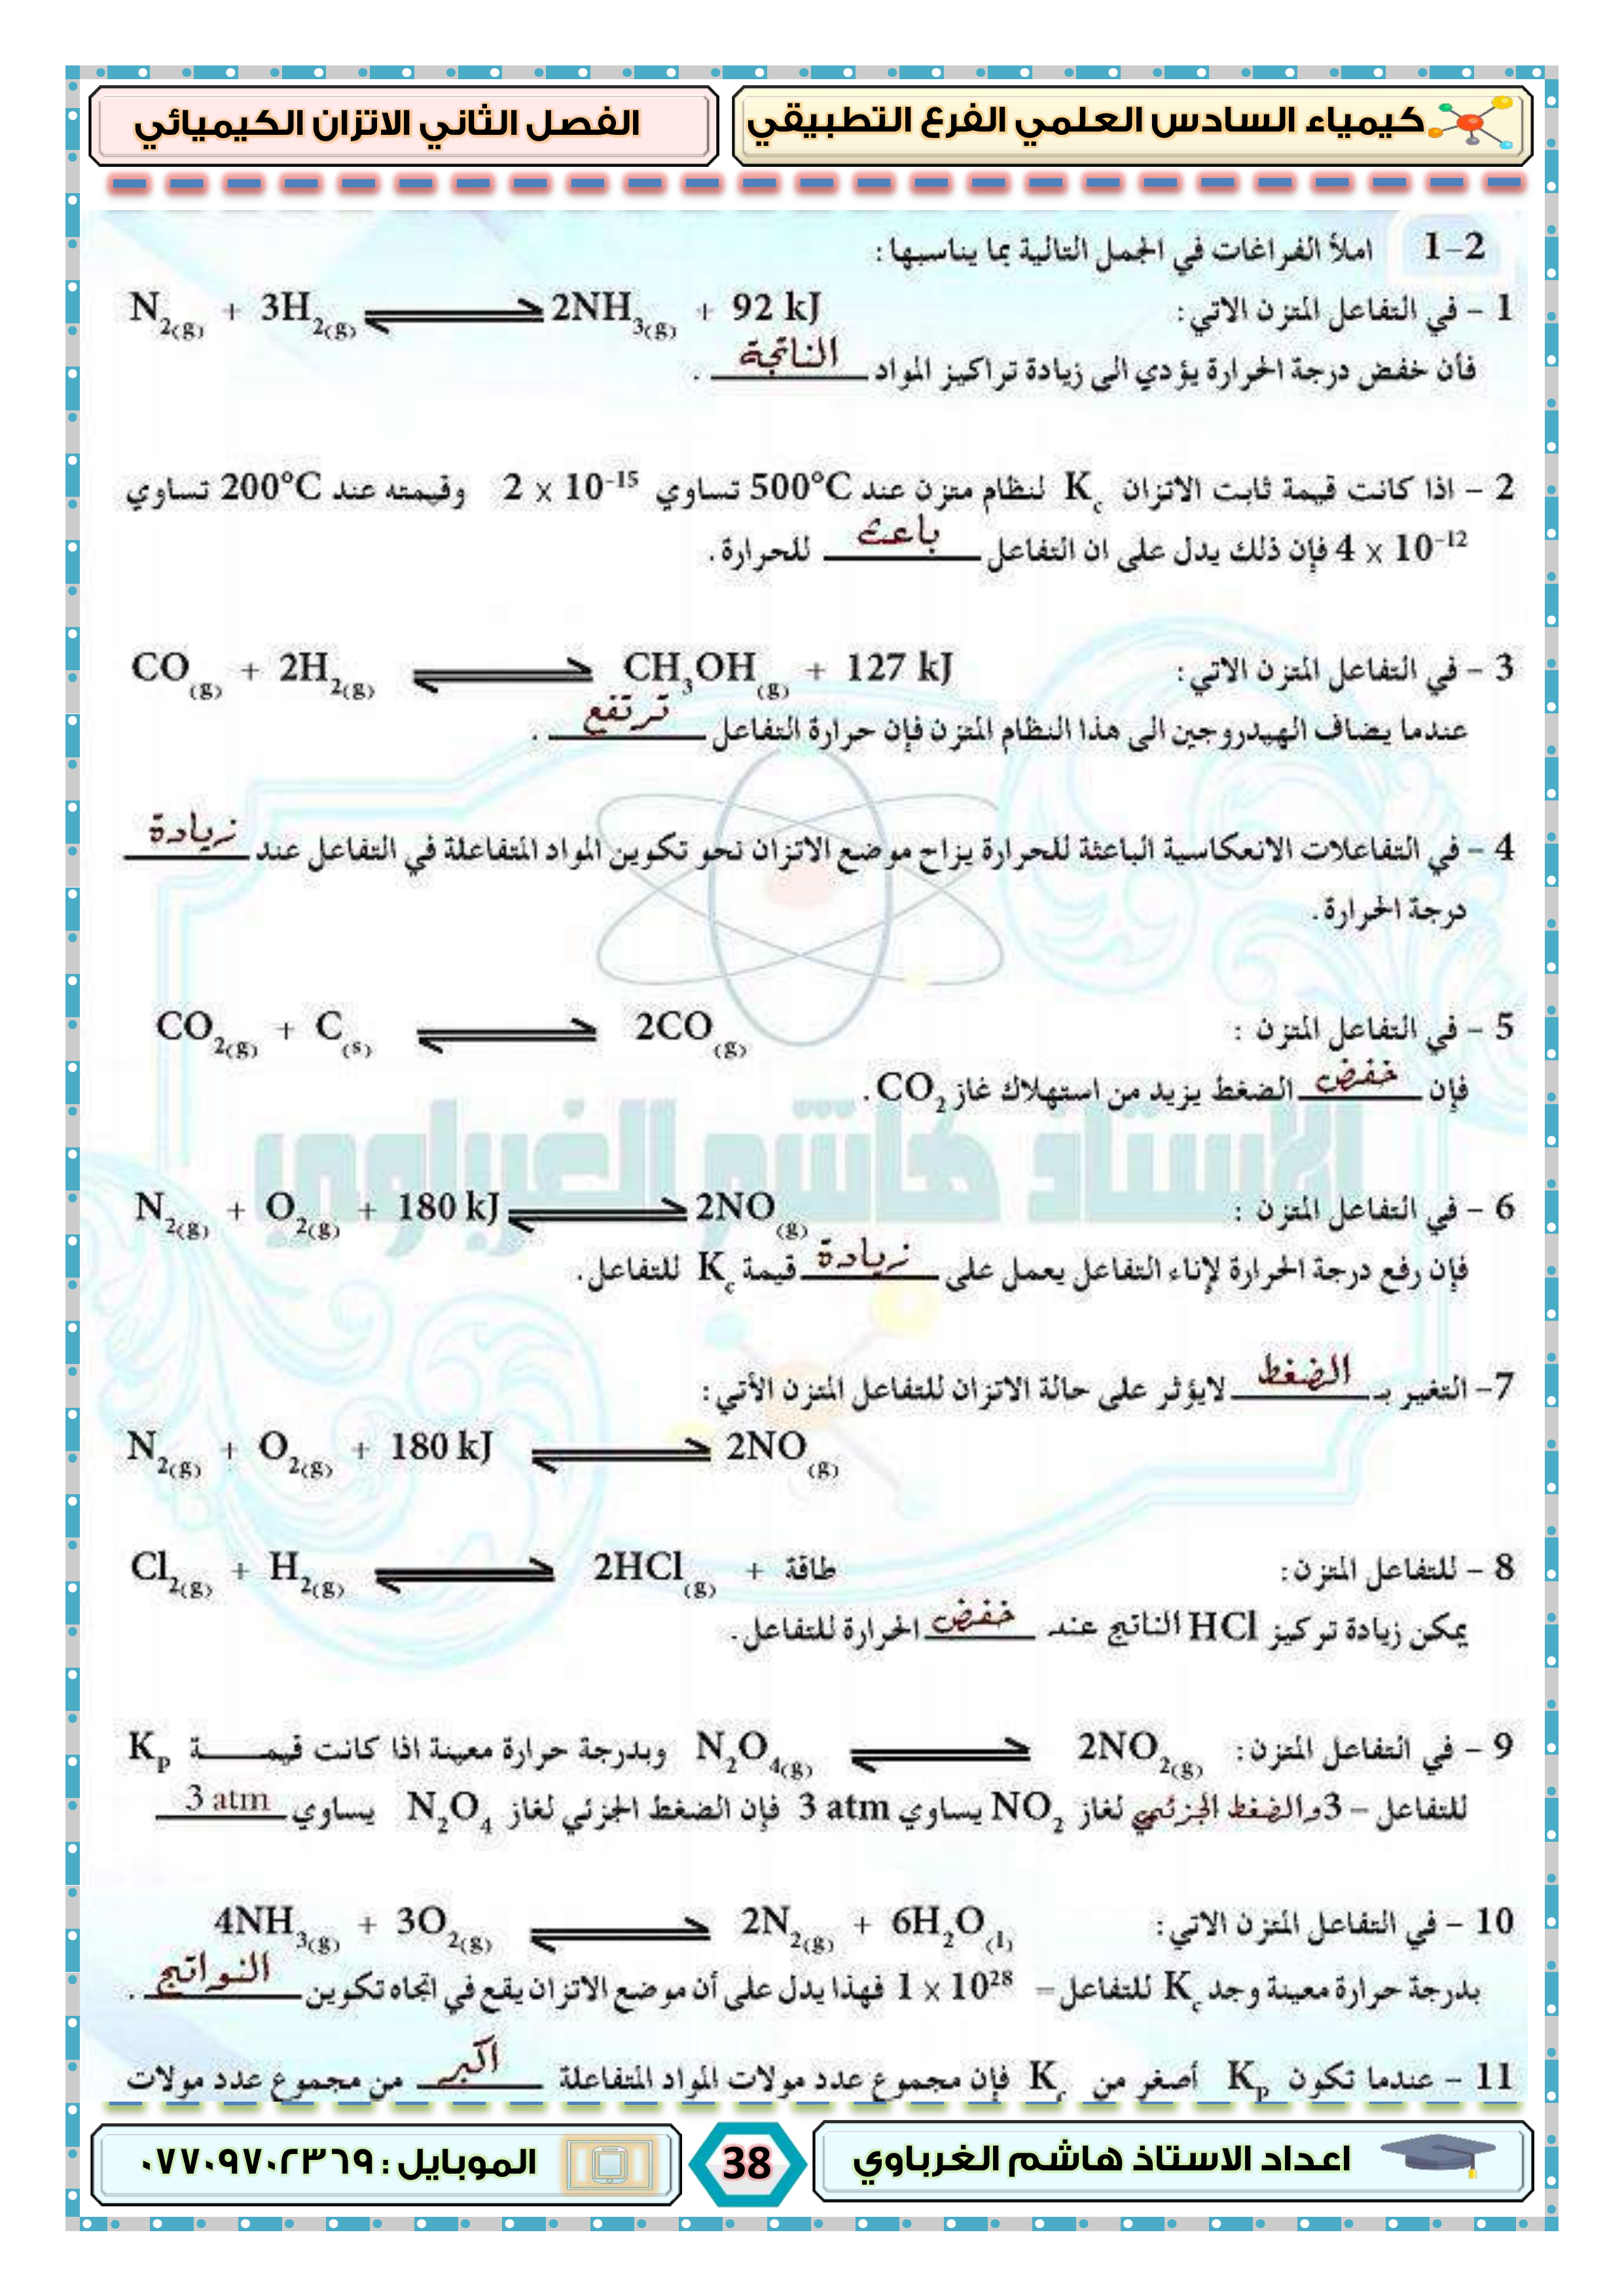 كيمياء السادس العلمي الفرع التطبيقي
الفصل الثاني الاتزان الكيميائي
1-2 املأ الفراغات في الجمل التالية بما يناسبها :
1 - في التفاعل المتزن الاتي: N2(g) + 3H2(g) ⇌ 2NH3(g) + 92 kJ
فأن خفض درجة الحرارة يؤدي الى زيادة تراكيز المواد الناتجة .
2 - اذا كانت قيمة ثابت الاتزان Kc لنظام متزن عند 500°C تساوي 2 × 10-15 وقيمته عند 200°C تساوي
4 × 10-12 فإن ذلك يدل على ان التفاعل باعث للحرارة .
3 - في التفاعل المتزن الاتي: CO(g) + 2H2(g) ⇌ CH3OH(g) + 127 kJ
عندما يضاف الهيدروجين الى هذا النظام المتزن فإن حرارة التفاعل ترتفع .
4 - في التفاعلات الانعكاسية الباعثة للحرارة يزاح موضع الاتزان نحو تكوين المواد المتفاعلة في التفاعل عند زيادة
درجة الحرارة .
5 - في التفاعل المتزن : CO2(g) + C(s) ⇌ 2CO(g)
فإن خفض الضغط يزيد من استهلاك غاز CO2 .
6 - في التفاعل المتزن : N2(g) + O2(g) + 180 kJ ⇌ 2NO(g)
فإن رفع درجة الحرارة لإناء التفاعل يعمل على زيادة قيمة Kc للتفاعل.
7- التغير بـ الضغط لايؤثر على حالة الاتزان للتفاعل المتزن الأتي :
N2(g) + O2(g) + 180 kJ ⇌ 2NO(g)
8 - للتفاعل المتزن: Cl2(g) + H2(g) ⇌ 2HCl(g) + طاقة
يمكن زيادة تركيز HCl الناتج عند خفض الحرارة للتفاعل .
9 - في التفاعل المتزن: N2O4(g) ⇌ 2NO2(g) وبدرجة حرارة معينة اذا كانت قيمـــــة Kp
للتفاعل = 3 والضغط الجزئي لغاز NO2 يساوي 3 atm فإن الضغط الجزئي لغاز N2O4 يساوي 3 atm
10 - في التفاعل المتزن الاتي: 4NH3(g) + 3O2(g) ⇌ 2N2(g) + 6H2O(l)
بدرجة حرارة معينة وجد Kc للتفاعل = 1 × 1028 فهذا يدل على أن موضع الاتزان يقع في اتجاه تكوين النواتج .
11 - عندما تكون Kp أصغر من Kc فإن مجموع عدد مولات المواد المتفاعلة اكبر من مجموع عدد مولات
الاستاذ هاشم الغرباوي
اعداد الاستاذ هاشم الغرباوي
38
الموبايل : ٠٧٧٠٩٧٠٢٣٦٩